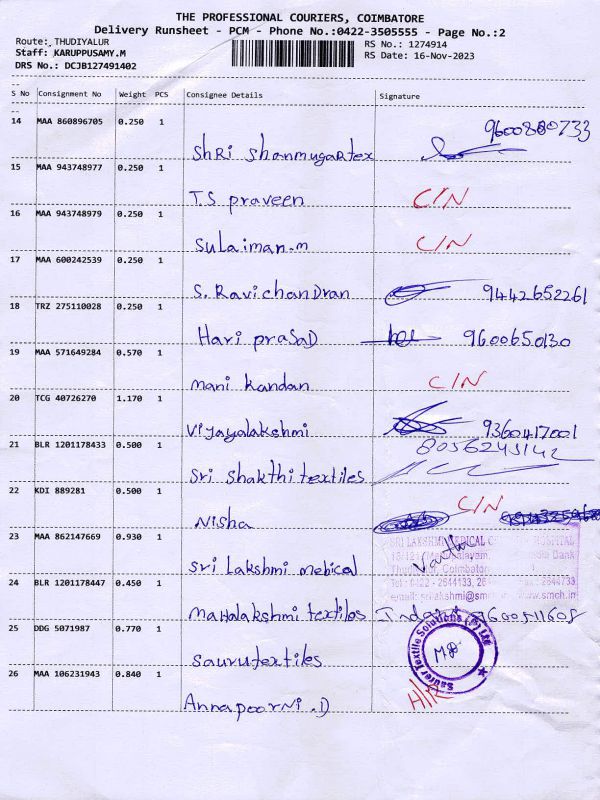 THE PROFESSIONAL COURIERS, COIMBATORE
Delivery Runsheet - PCM - Phone No.:0422-3505555 - Page No.:2
Route: THUDIYALUR
Staff: KARUPPUSAMY.M
DRS No.: DCJB127491402
RS No.: 1274914
RS Date: 16-Nov-2023
S No Consignment No Weight PCS Consignee Details Signature
14 MAA 860896705 0.250 1 Shri Shanmugar tex 9600880733
15 MAA 943748977 0.250 1 T.S praveen C/N
16 MAA 943748979 0.250 1 Sulaiman.m C/N
17 MAA 600242539 0.250 1 S. Ravichandran 9442652261
18 TRZ 275110028 0.250 1 Hari prasad 9600650130
19 MAA 571649284 0.570 1 mani kandan C/N
20 TCG 40726270 1.170 1 Vijayalakshmi 9360417001
21 BLR 1201178433 0.500 1 Sri Shakthi textiles 8056245142
22 KDI 889281 0.500 1 Nisha C/N
23 MAA 862147669 0.930 1 Sri Lakshmi medical
SRI LAKSHMI MEDICAL HOSPITAL
Bank
Coimbatore
Tel : 0422 - 2644133, 2644733
24 BLR 1201178447 0.450 1 Mahalakshmi textiles
25 DDG 5071987 0.770 1 Saurutextiles
Saurer Textile Solutions (P) Ltd
26 MAA 106231943 0.840 1 Annapoorni .D